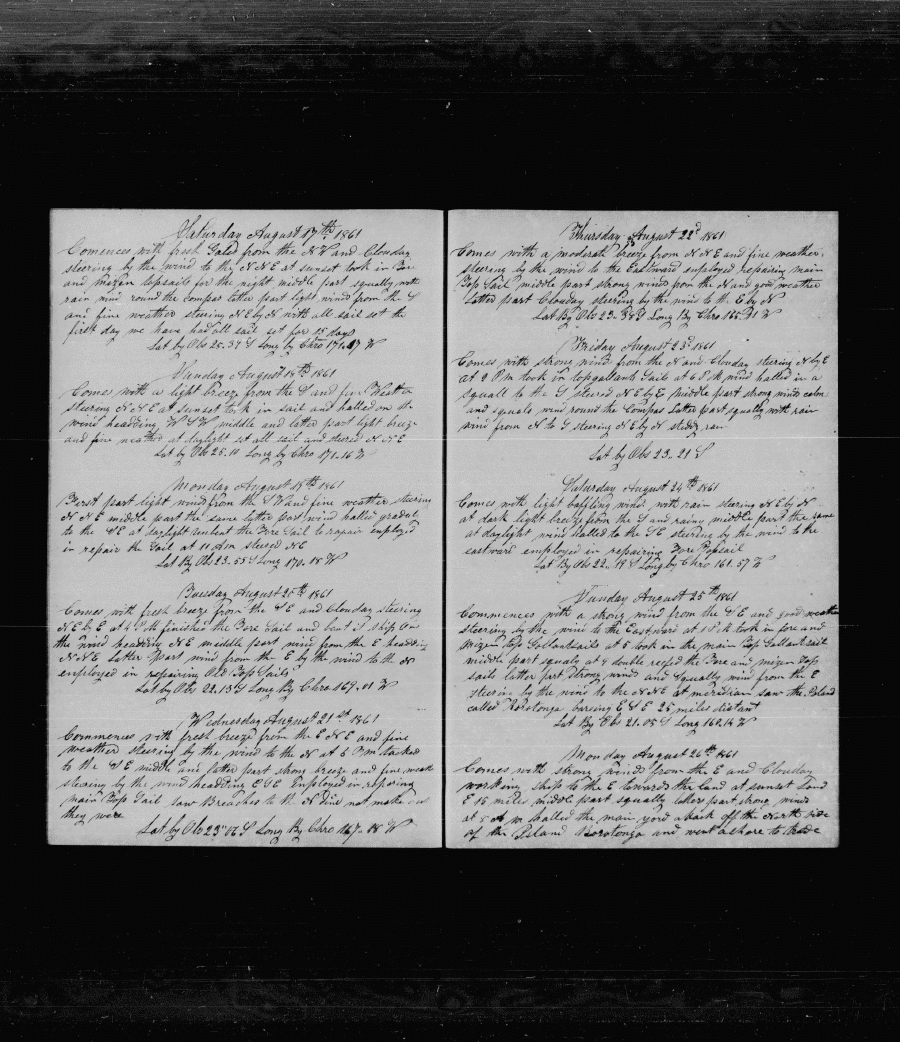 Saturday August 17th 1861
Comences with fresh Gales from the N W and Clouday
steering by the wind to the N N E at sunset took in Fore
and mizen topsails for the night middle part squally with
rain wind round the compas latter part light winds from the S
and fine weather steering N E by N with all sail set the
first day we have had all sail set for 15 days
Lat by Obs 25.37 S Long by Chro 171.17 W
Sunday August 18th 1861
Comes with a light breeze from the S and fine Weather
steering N N E at sunset took in sail and halled on the
wind headding W S W middle and letter part light breeze
and fine weather at daylight set all sail and steered N N E
Lat by Obs 25.10 Long by Chro 171.16 W
Monday August 19th 1861
First part light winds from the S W and fine weather steering
N N E middle part the same latter part wind halled gradual
to the S E at daylight unbeat the Fore Sail to repair employed
in repair the Sail at 11 Am steered N E
Lat By Obs 23.55 S Long 170.18 W
Tuesday August 20th 1861
Comes with fresh breeze from the S E and Clouday steering
N E b E at 4 P M finished the Fore Sail and bent it ship on
the wind headding N E middle part wind from the E headding
N N E Latter part wind from the E by the wind to the N
employed in repairing Old Top Sails
Lat by Obs 22.13 S Long By Chro 169.01 W
Wednesday August 21st 1861
Commences with fresh breeze from the E N E and fine
weather steering by the wind to the N at 6 P m tacked
to the S E middle and latter part strong breeze and fine weath
stearing by the wind headding E S E Employed in repering
main Top Sail saw Breaches to the N did not make out
they were
Lat by Obs 23.12 S Long By Chro 167.18 W
Thursday August 22d 1861
Comes with a moderate breeze from N N E and fine weather
steering by the wind to the Eastward employed repairing main
Top Sail middle part strong winds from the N and good weather
Latter part Clouday steering by the wind to the E by N
Lat By Obs 23.38 S Long By Chro 165.31 W
Friday August 23d 1861
Comes with strong wind from the N and Clouday steering N by E
at 2 P m took in topgallant Sails at 6 P M wind halled in a
squall to the S steered N E by E middle part strong winds calms
and squals wind round the Compas Latter part squally with rain
wind from N to S steering N E by N steddy rain
Lat by Obs 23.21 S
Saturday August 24th 1861
Comes with light baffling winds with rain steering N E by N
at dark light breeze from the S and rainy middle part the same
at daylight wind halled to the S E steering by the wind to the
eastward employed in repairing Fore Topsail
Lat By Obs 22.19 S Long by Chro 161.57 W
Sunday August 25th 1861
Commences with a strong wind from the S E and good weather
steering by the wind to the Eastward at 1 P M took in fore and
Mizen Top Gallantsails at 5 took in the main Top Gallantsail
middle part squaly at 4 double reefed the Fore and mizen Top
sails latter part strong winds and squally wind from the E
steering by the wind to the N N E at meridian saw the Island
called Rorotonga bareing E S E 25 miles distant
Lat By Obs 21.05 S Long 160.18 W
Monday August 26th 1861
Comes with strong winds from the E and Clouday
working ship to the E towards the land at sunset Land
E 15 miles middle part squally laters part strong winds
at 5 A m halled the main yard aback off the North side
of the Island Rorotonga and went ashore to trade